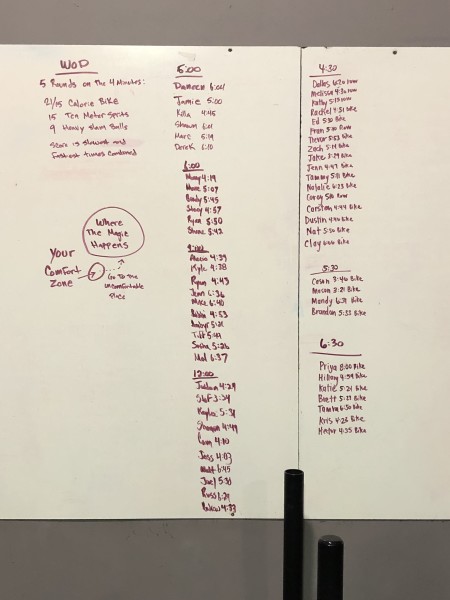 WOD
5 Rounds on The 4 Minutes:
21/15 Calorie Bike
15 Ten Meter Sprits
9 Heavy Slam Balls
Score is slowest and
Fastest times combined
Where
The Magic
Happens
Your
Comfort
Zone
Go To The
uncomfortable
Place
5:00
Dameen 6:04
Jamie 5:00
Killa 4:45
Shawn 6:01
Marc 5:19
Derek 6:10
6:00
4:19
5:09
Brady 5:45
Stacy 4:57
Ryan 5:50
Shane 5:42
9:00
Alecia 4:39
Kyle 4:38
Ryan 4:43
Jenn 6:36
Mike 6:40
4:53
5:21
Tift
Sasha 5:26
Mal 6:37
12:00
4:29
Stef 3:34
Kaylee 5:31
Shannon 4:49
Cam 4:10
Jess 4:03
Matt 6:45
Joel 5:33
Russ
4:30
Dallas 6:20 row
Melissa 4:30 row
Kathy 5:13 row
Rachel 4:51 bike
Ed 5:30 Bike
Fran 5:30 Row
Trevor 5:53 Bike
Zach 5:14 Bike
Jake 5:29 Bike
Jenn 4:47 Bike
Tammy 5:11 Bike
Natalie 6:23 Bike
Corey Row
Carston 4:44 Bike
Dustin 4:40 Bike
Nat 5:50 Bike
Clay Bike
5:30
Cesan 3:46 Bike
Mason 3:21 Bike
Mandy 6:31 Bike
Brandon 5:33 Bike
6:30
Priya 8:00 Bike
Hillary 4:59 Bike
Katie 5:21 Bike
Brett 5:27 Bike
Tamra 6:30 Bike
Kris 4:26 Bike
4:35 Bike